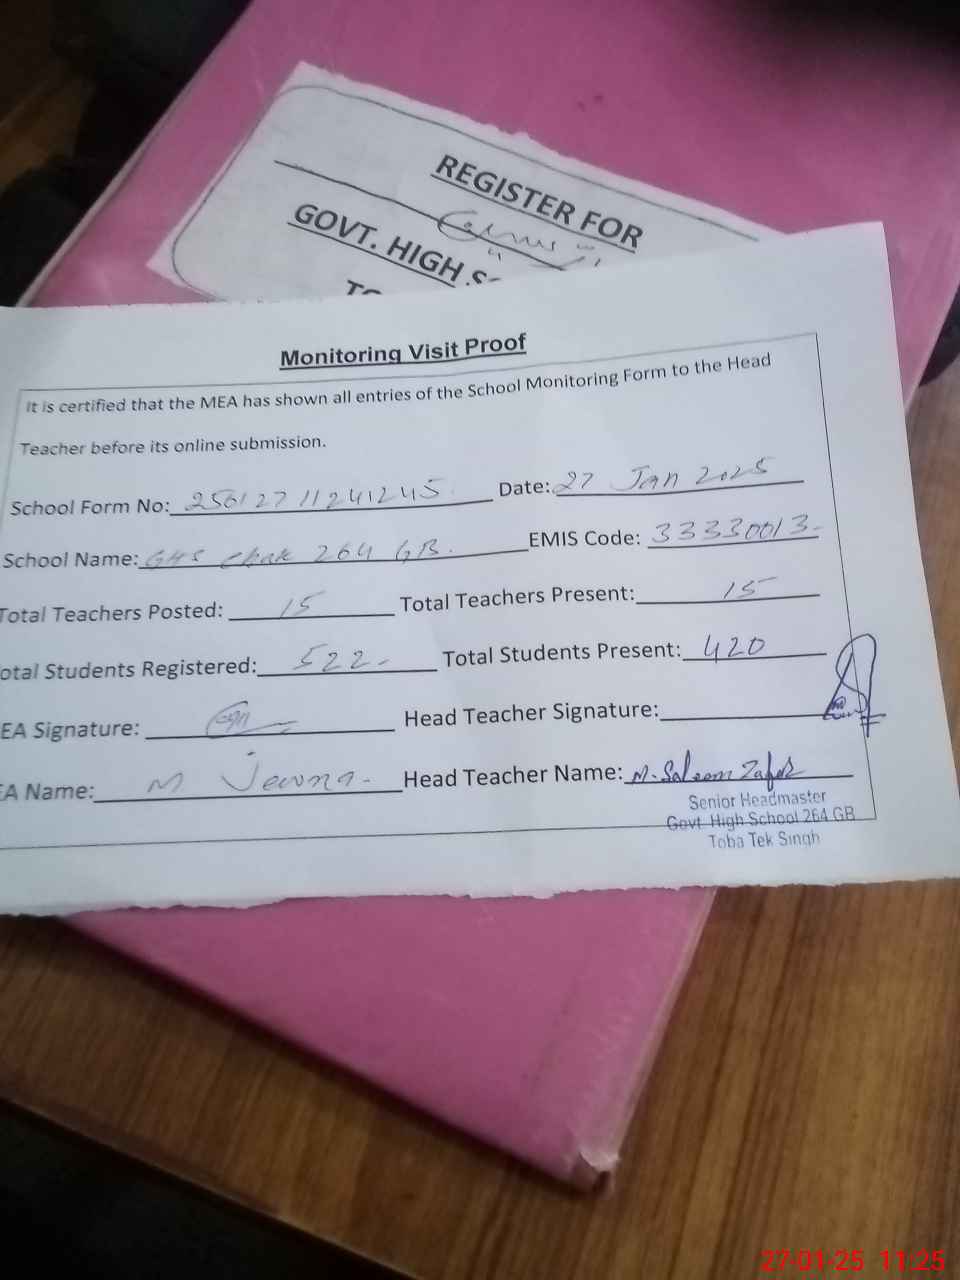 REGISTER FOR
GOVT. HIGH S
Monitoring Visit Proof
It is certified that the MEA has shown all entries of the School Monitoring Form to the Head
Teacher before its online submission.
School Form No: 25012711241245 Date: 27 Jan 2025
School Name: GHS Chak 264 GB. EMIS Code: 33330013-
Total Teachers Posted: 15 Total Teachers Present: 15
otal Students Registered: 522- Total Students Present: 420
EA Signature: Head Teacher Signature:
EA Name: M Head Teacher Name: M. Saleem Zafar
Senior Headmaster
Govt. High School 264 GB
Toba Tek Singh
27-01-25 11:25